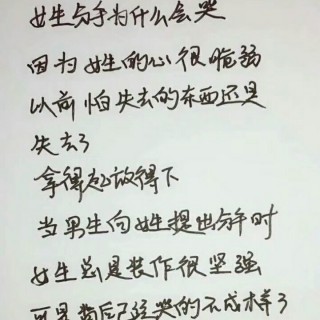 女生分手为什么会哭
因为女生的心很脆弱
以前怕失去的东西还是
失去了
拿得起放得下
当男生向女生提出分手时
女生总是装作很坚强
可是背后已经哭的不成样了